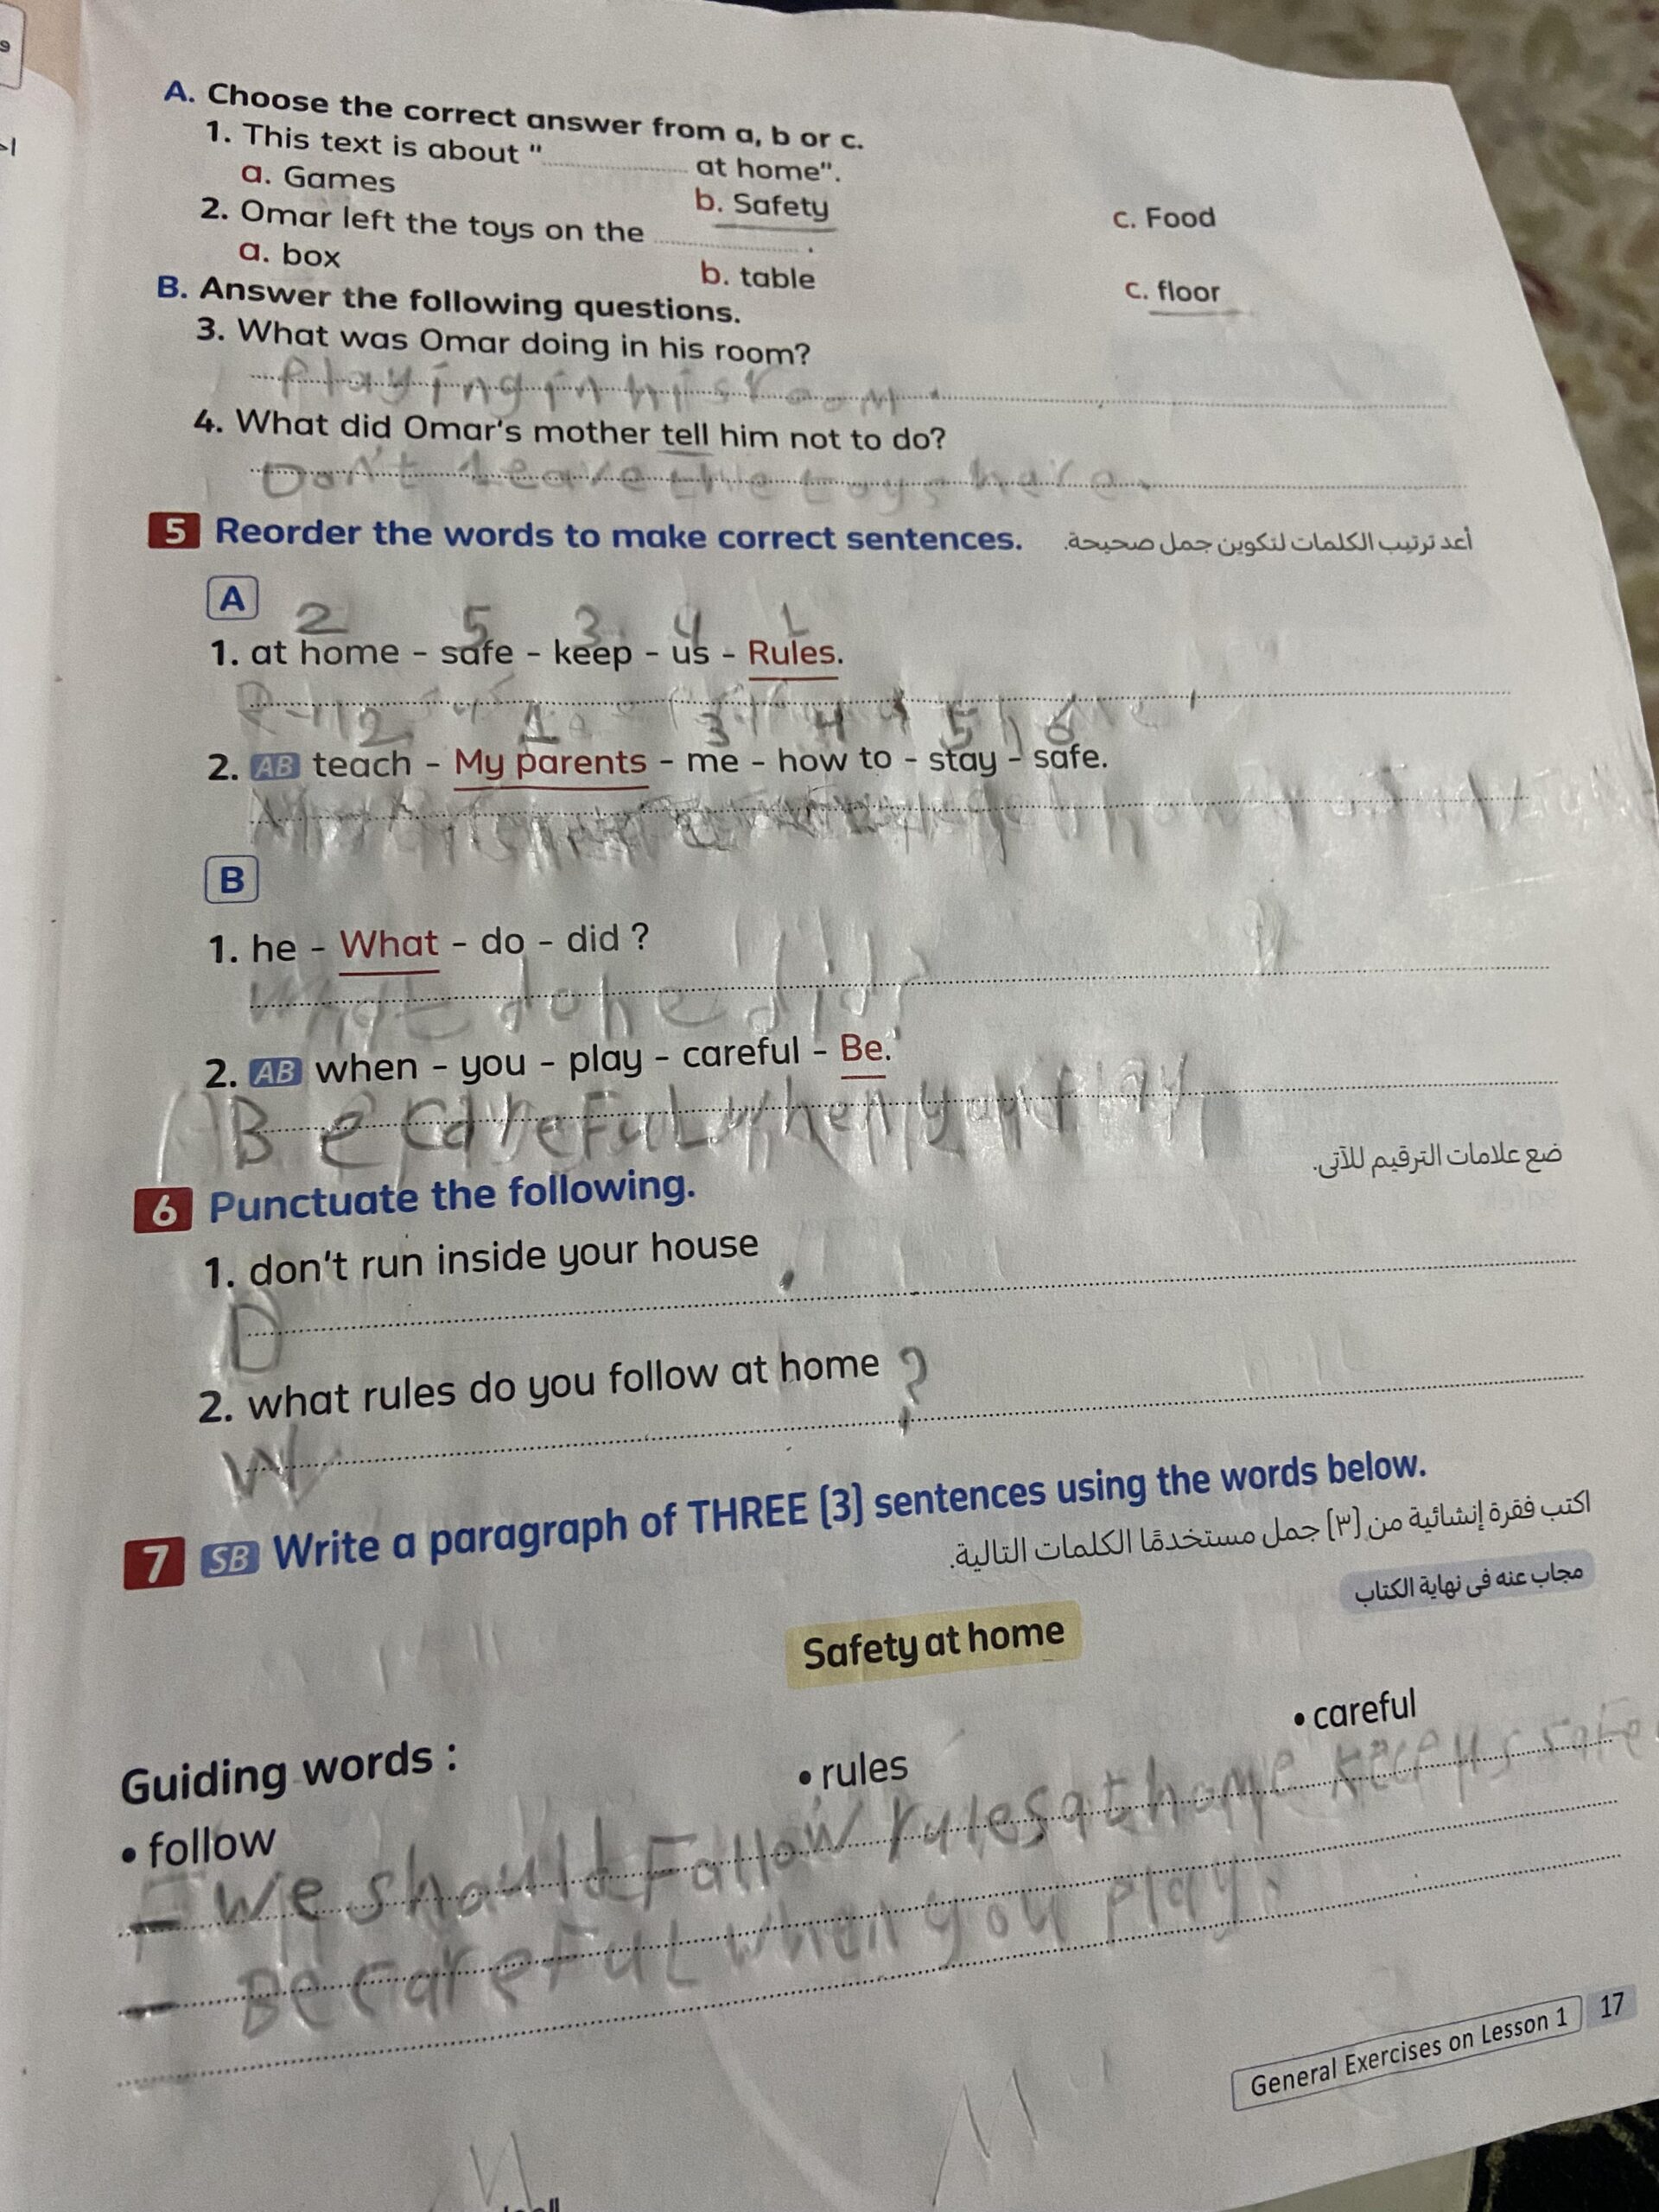 A. Choose the correct answer from a, b or c.
1. This text is about "............... at home".
a. Games b. Safety c. Food
2. Omar left the toys on the ............... .
a. box b. table c. floor
B. Answer the following questions.
3. What was Omar doing in his room?
Playing in his room.
4. What did Omar's mother tell him not to do?
Don't leave the toys here.
5 Reorder the words to make correct sentences. أعد ترتيب الكلمات لتكوين جمل صحيحة.
A
2 5 3 4 1
1. at home - safe - keep - us - Rules.
2 1 3 4 5 6
2. AB teach - My parents - me - how to - stay - safe.
B
1. he - What - do - did ?
What do he did?
2. AB when - you - play - careful - Be.
Be careful when you play
6 Punctuate the following. ضع علامات الترقيم للآتى.
1. don't run inside your house .
D
2. what rules do you follow at home ?
W
7 SB Write a paragraph of THREE (3) sentences using the words below.
اكتب فقرة إنشائية من (٣) جمل مستخدمًا الكلمات التالية.
مجاب عنه فى نهاية الكتاب
Safety at home
Guiding words :
• follow • rules • careful
- we should Follow rules at home keep us safe
- Be careful when you play.
General Exercises on Lesson 1 17